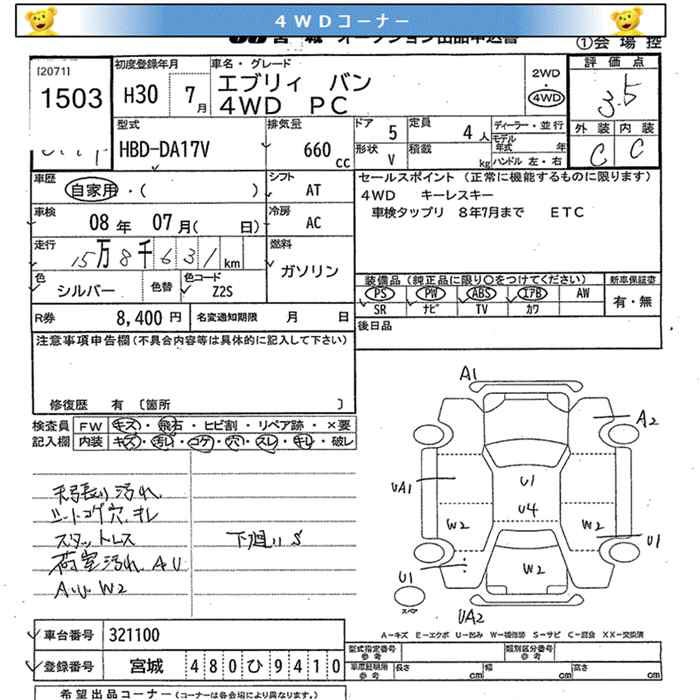 4WDコーナー
JU宮城 オークション出品申込書 ①会場控
[2071]
1503
初度登録年月 H30 7月
車名・グレード
エブリィ バン
4WD PC
2WD
4WD
評価点
3.5
外装 内装
C C
型式 HBD-DA17V
排気量 660 cc
ドア 5 定員 4人
形状 V 積載 kg
ディーラー・並行
モデル年式 年
ハンドル 左・右
車歴 自家用・( )
シフト AT
車検 08年 07月( 日)
冷房 AC
走行 15万8千631km
燃料 ガソリン
色 シルバー 色替 色コード Z2S
R券 8,400円 名変通知期限 月 日
セールスポイント (正常に機能するものに限ります)
4WD キーレスキー
車検タップリ 8年7月まで ETC
装備品(純正品に限り○をつけてください) 新車保証書
PS PW ABS エアB AW 有・無
SR ナビ TV カワ
後日品
注意事項申告欄(不具合内容等は具体的に記入して下さい)
修復歴 有 〔箇所 〕
検査員 FW キズ・飛石・ヒビ割・リペア跡・×要
記入欄 内装 キズ・汚れ・コゲ・穴・スレ・キレ・破レ
天張り汚れ
シートコゲ穴.キレ
スタットレス
荷室汚れ AU
A.U.W2
下廻りS
A1
A2
UA1
U1
U4
W2
W2
W2
U1
U1
UA2
スペア
A-キズ E-エクボ U-凹み W-補修跡 S-サビ C-腐食 XX-交換済
車台番号 321100
登録番号 宮城 480ひ9410
型式指定番号 参考 類別区分番号 参考
車庫証明用 参考 長さ 幅 高さ
希望出品コーナー(コーナーは各会場により異なります。)